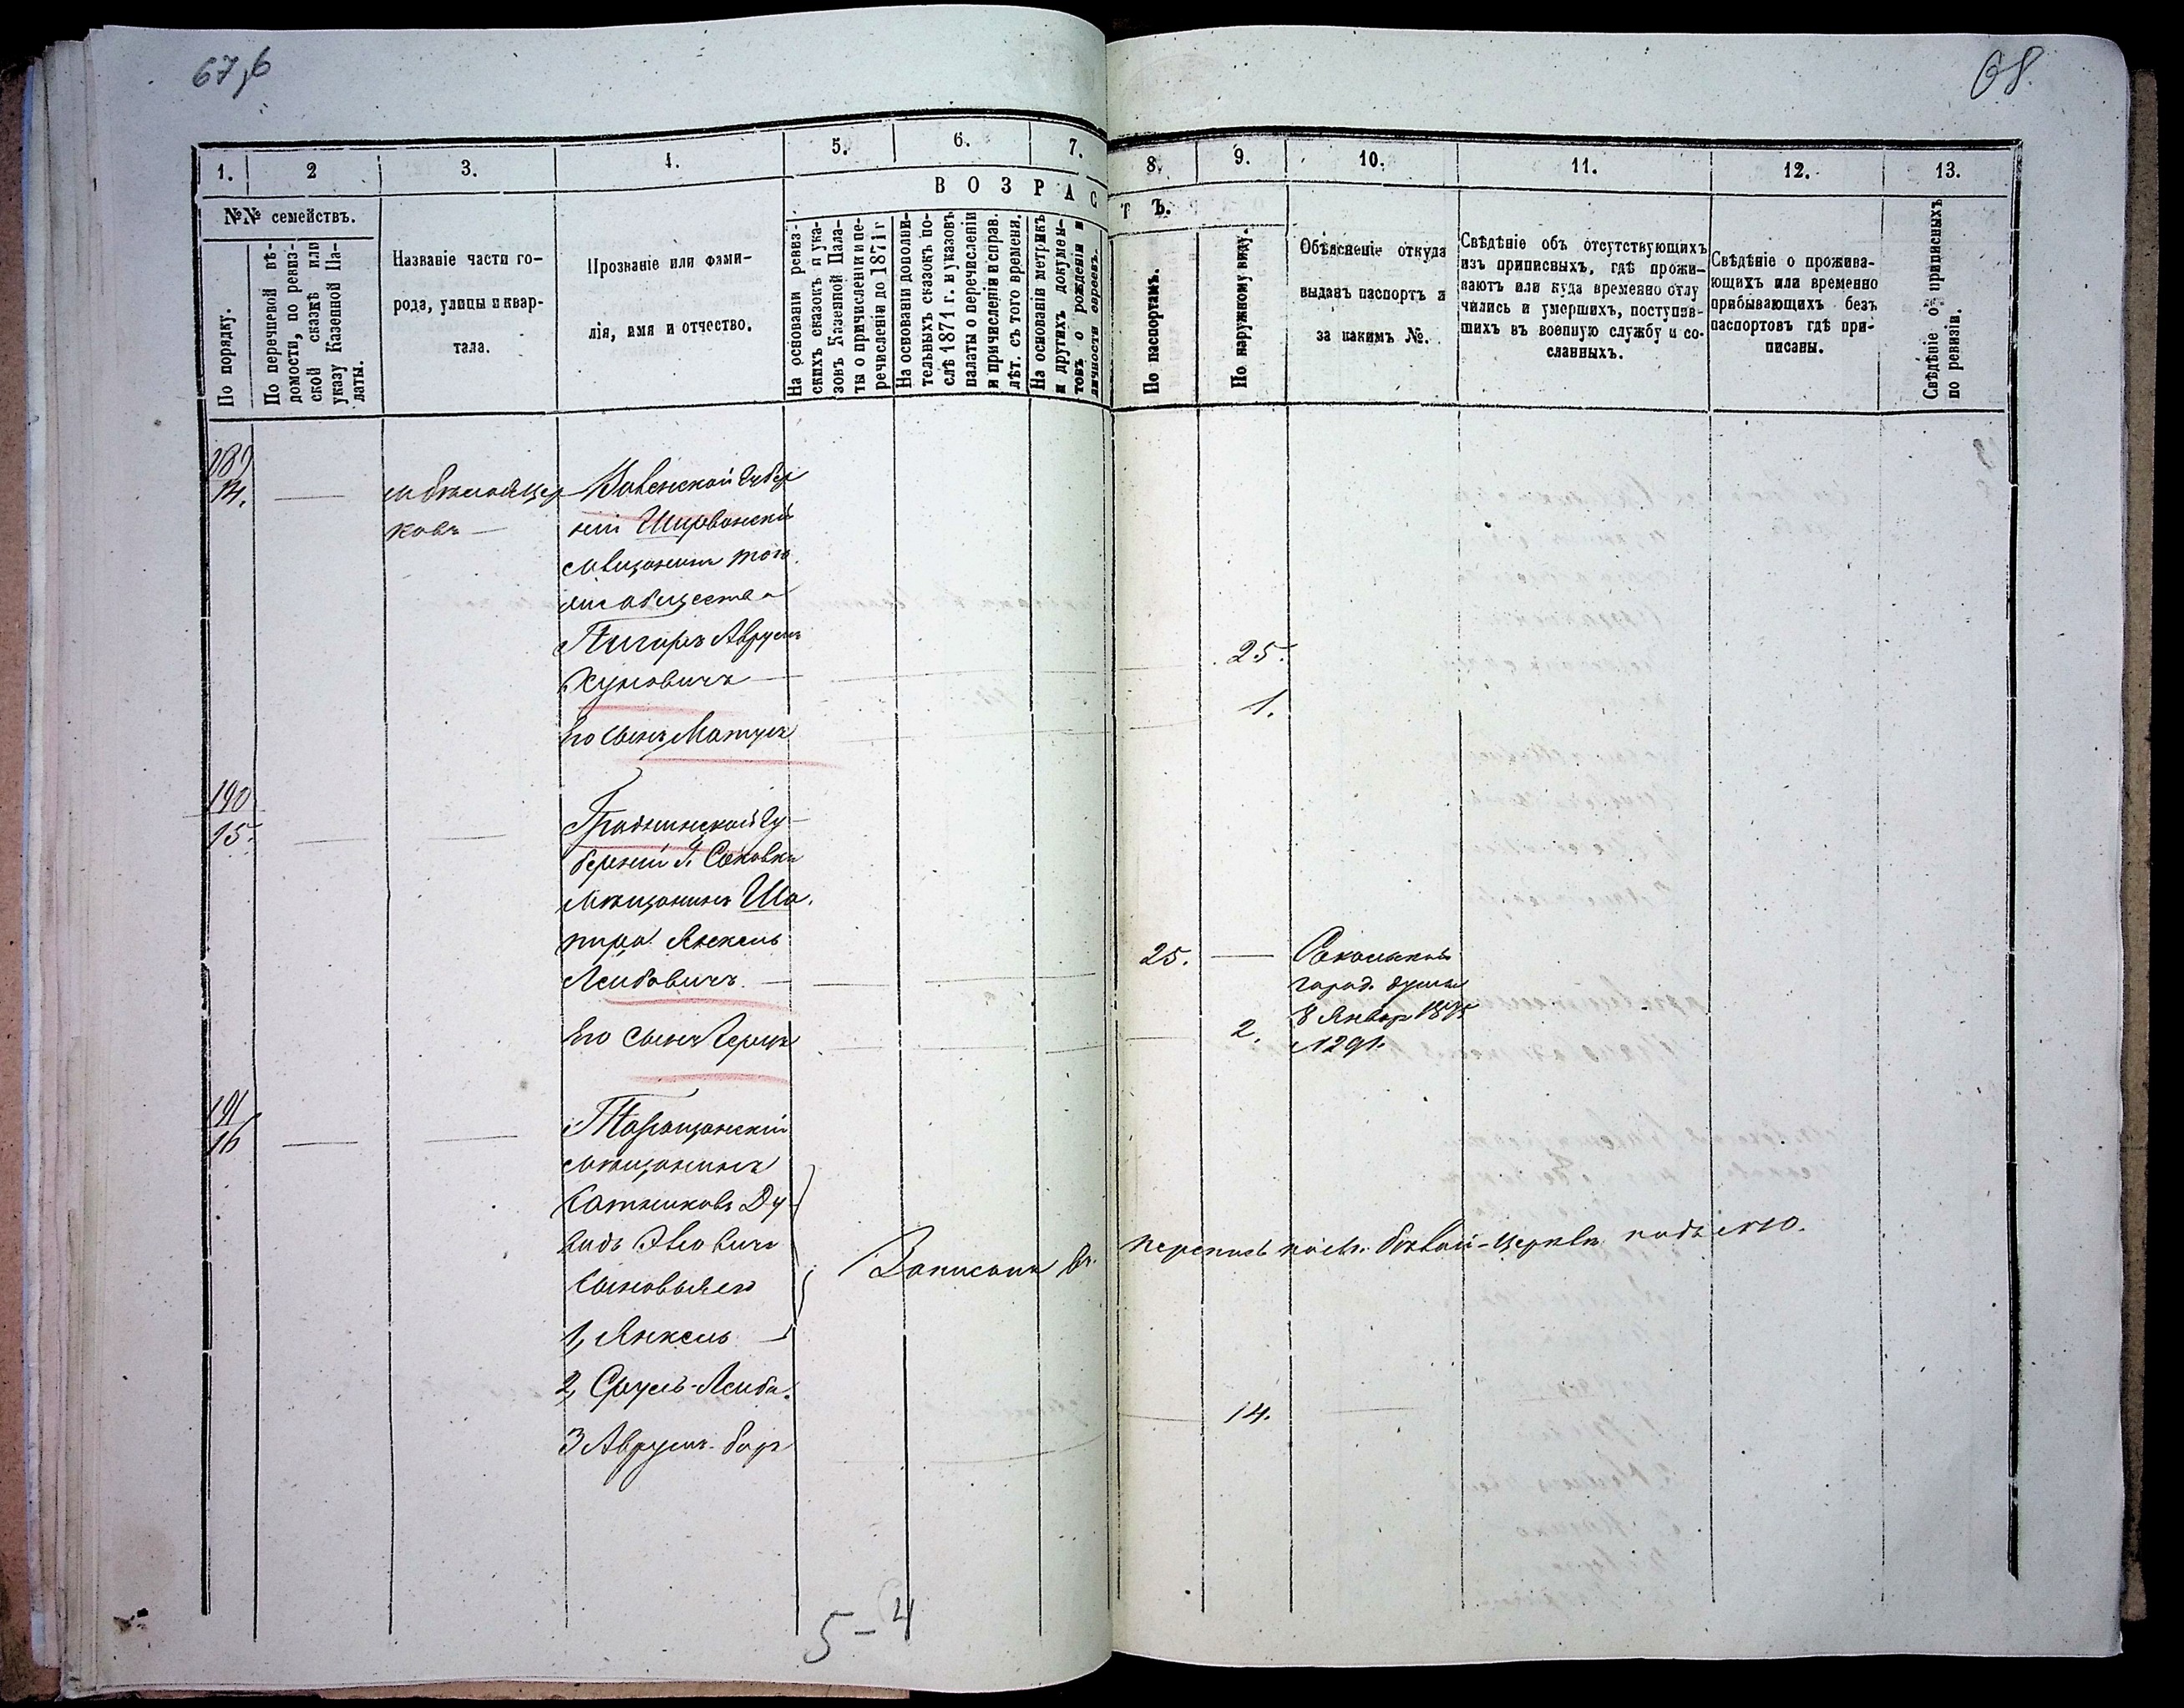 67,б
68.
1.
2
3.
4.
5.
6.
7.
8.
9.
10.
11.
12.
13.
№№ семействъ.
ВОЗРАС
ТЪ.
По порядку.
По перечневой вѣ-
домости, по ревиз-
ской сказкѣ или
указу Казенной Па-
латы.
Названіе части го-
рода, улицы и квар-
тала.
Прозваніе или фами-
лія, имя и отчество.
На основаніи ревиз-
скихъ сказокъ и ука-
зовъ Казенной Пала-
ты о причисленіи и пе-
речисленіи до 1871 г
На основаніи дополни-
тельныхъ сказокъ по-
слѣ 1871 г. и указовъ
палаты о перечисленіи
и причисленіи и справ.
лѣт. съ того времени.
На основаніи метрикъ
и другихъ докумен-
товъ о рожденіи и
личности евреевъ.
По паспортамъ.
По наружному виду.
Объясненіе откуда
выданъ паспортъ и
за какимъ №.
Свѣдѣніе объ отсутствующихъ
изъ приписныхъ, гдѣ прожи-
ваютъ или куда временно отлу
чились и умершихъ, поступив-
шихъ въ военную службу и со-
сланныхъ.
Свѣдѣніе о прожива-
ющихъ или временно
прибывающихъ безъ
паспортовъ гдѣ при-
писаны.
Свѣдѣніе объ приписныхъ
по ревизіи.
189
14.
ковъ
Ковенской Губер
ніи Ширвонскій
мѣщанинъ того
общества
Аврумъ
25.
1.
Его сынъ
190
15.
Гродненской Гу-
берніи Г. Соковки
мѣщанинъ Ша
пиро Янкель
Лейбовичъ
25.
город. дума
8 Январ 1875
№ 1291.
Его сынъ Герцъ
2.
191
16
Таращанскій
мѣщанинъ
Сатановъ Ду
видъ
Сыновья его
1, Янкель
2, Сруль-Лейба.
3 Аврумъ-Бер
Записаны въ перепись мѣст. Бѣлой-Церкви подъ №10.
14.
5-4